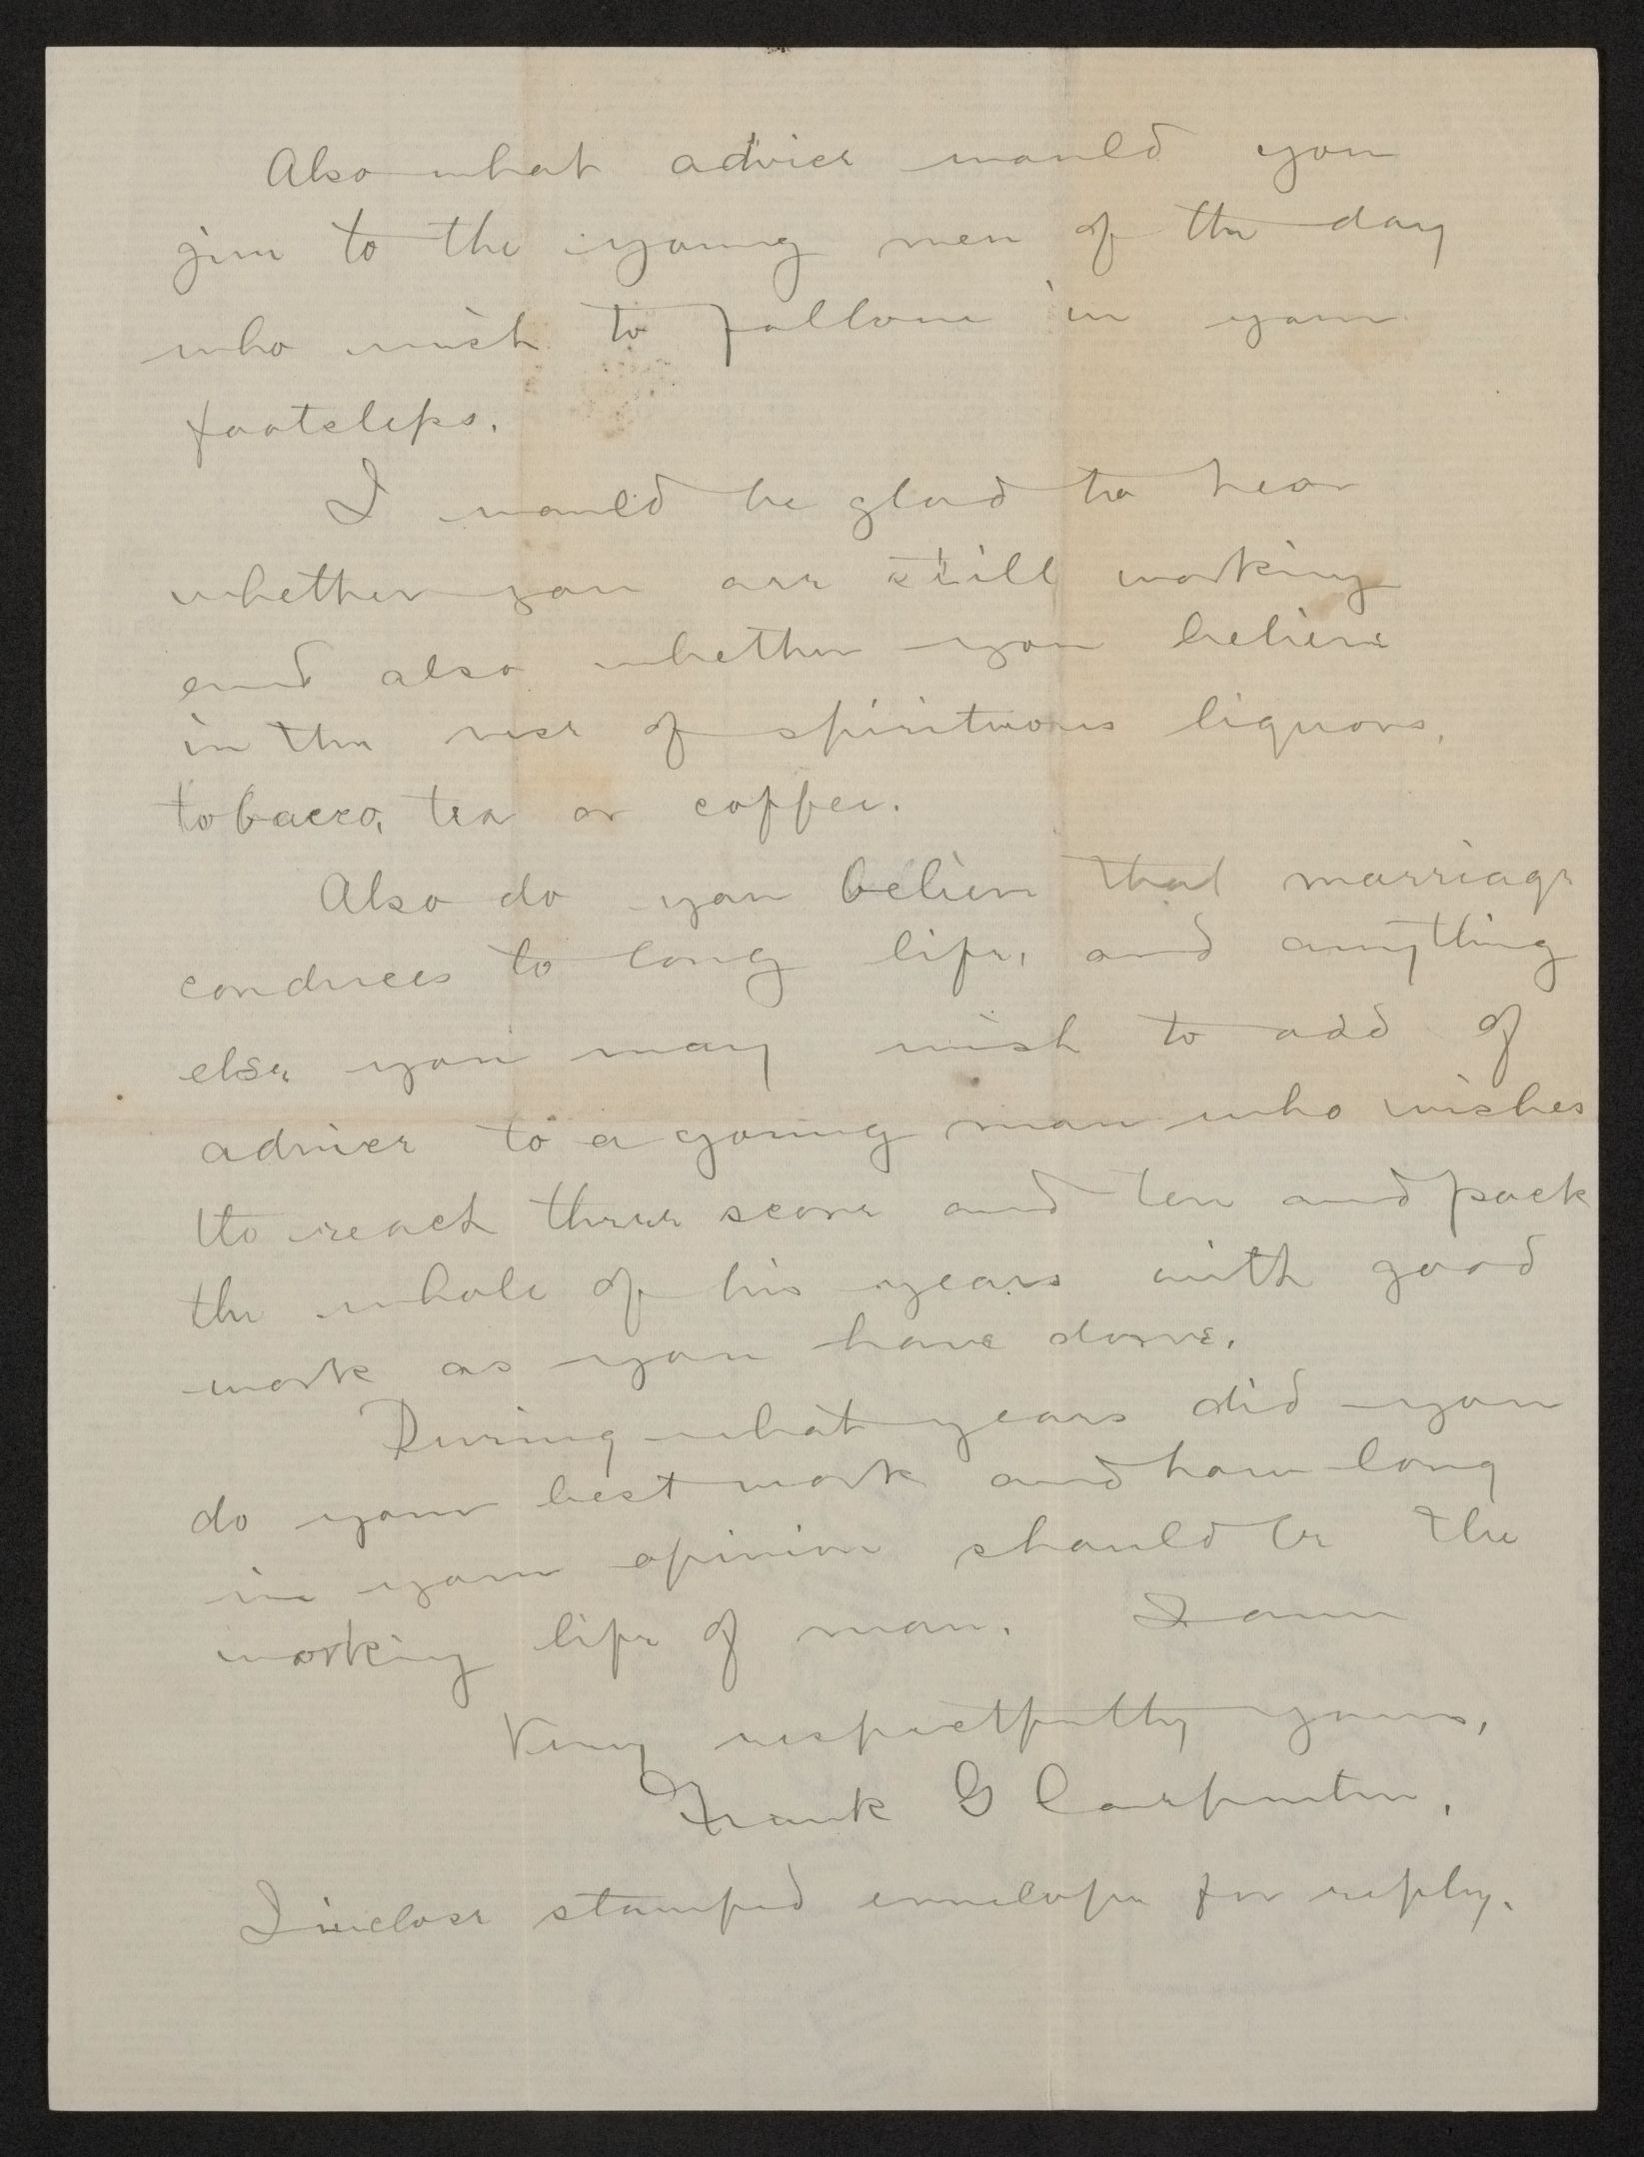 Also what advice would you
give to the young men of the day
who wish to follow in your
footsteps.
I would be glad to hear
whether you are still working
and also whether you believe
in the use of spirituous liquors,
tobacco, tea or coffee.
Also do you believe that marriage
conduces to long life, and anything
else you may wish to add of
advice to a young man who wishes
to reach three score and ten and pack
the whole of his years with good
work as you have done.
During what years did you
do your best work and how long
in your opinion should be the
working life of man. I am
Very respectfully yours,
Frank G Carpenter.
I inclose stamped envelope for reply.